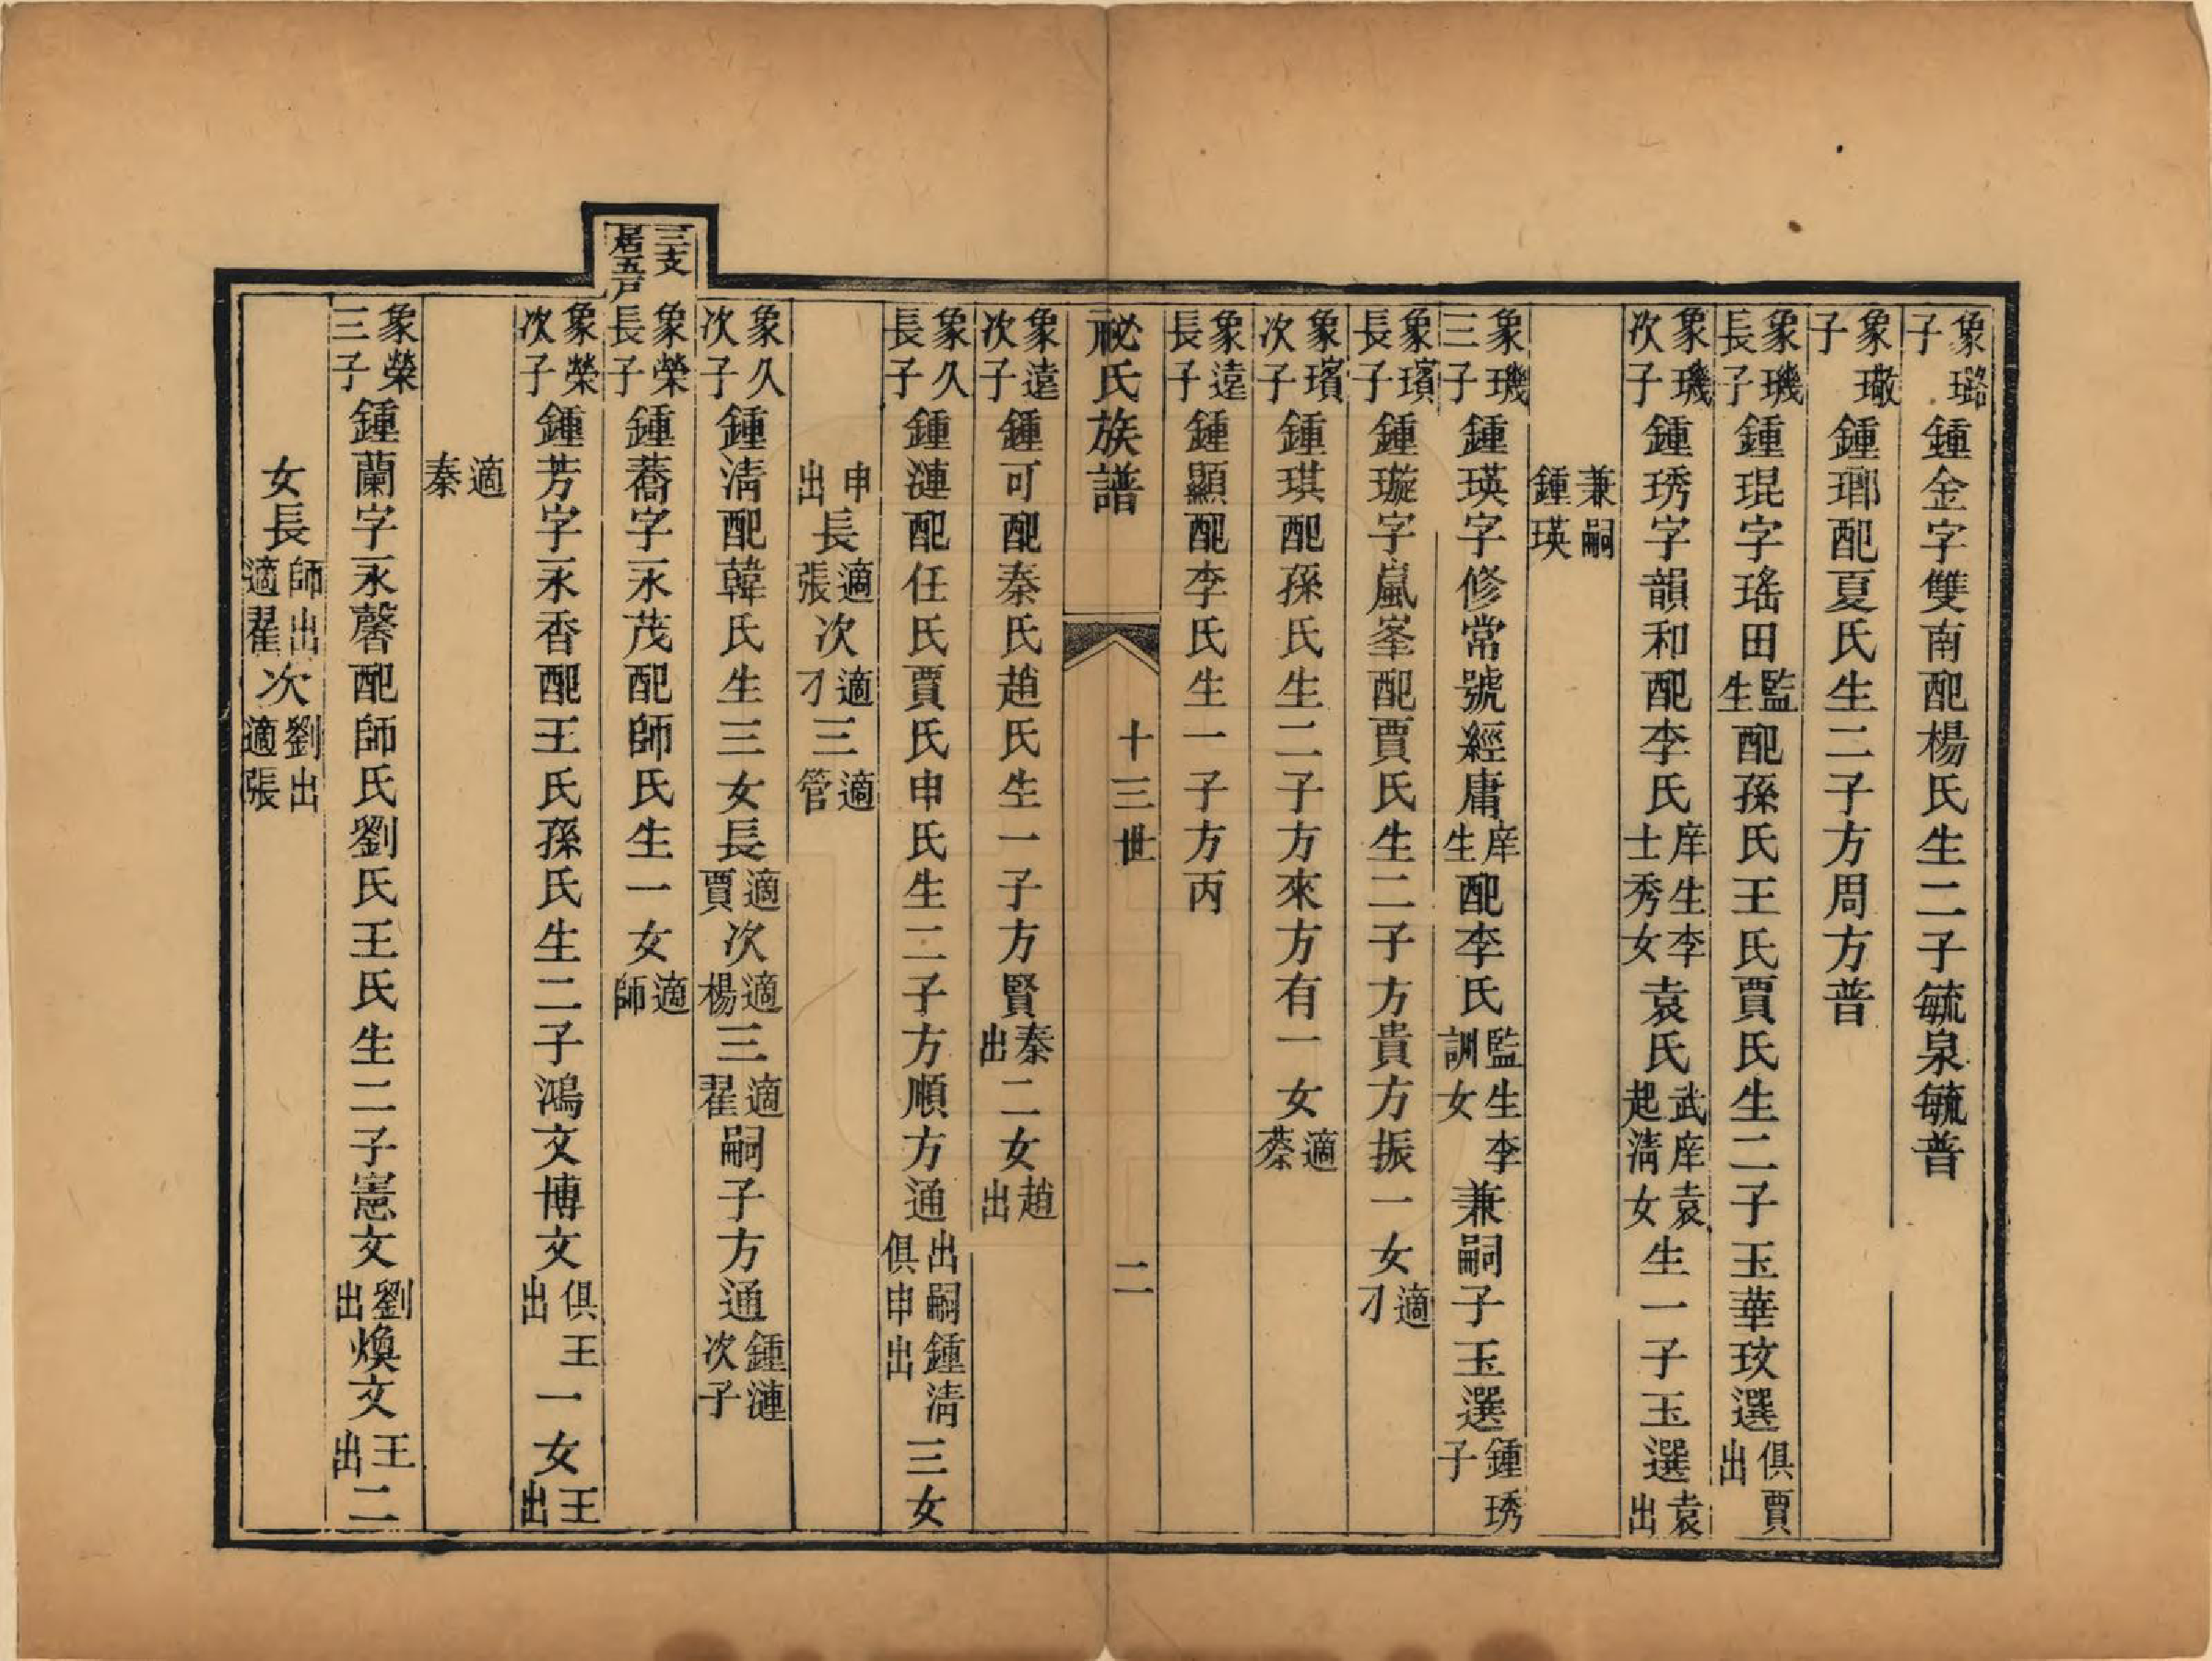 象璐子鍾金字雙南配楊氏生二子毓泉毓普
象璥子鍾瑯配夏氏生二子方周方普
象璣長子鍾琨字瑤田監生配孫氏王氏賈氏生二子玉華玟選俱賈出
象璣次子鍾琇字韻和配李氏庠生李士秀女袁氏武庠袁起淸女生一子玉選袁出
兼嗣鍾瑛
象璣三子鍾瑛字修常號經庸庠生配李氏監生李訓女兼嗣子玉選鍾琇子
象璸長子鍾璇字嵐峯配賈氏生二子方貴方振一女適刁
象璸次子鍾琪配孫氏生二子方來方有一女適蔡
象遠長子鍾顯配李氏生一子方丙
祕氏族譜 十三世 二
象遠次子鍾可配秦氏趙氏生一子方賢秦出二女趙出
象久長子鍾漣配任氏賈氏申氏生二子方順方通出嗣鍾淸俱申出三女
申出長適張次適刁三適管
象久次子鍾淸配韓氏生三女長適賈次適楊三適翟嗣子方通鍾漣次子
三支居五戶
象榮長子鍾蕎字永茂配師氏生一女適師
象榮次子鍾芳字永香配王氏孫氏生二子鴻文博文俱王出一女王出
適秦
象榮三子鍾蘭字永馨配師氏劉氏王氏生二子憲文劉出煥文王出二
女長師出適翟次劉出適張